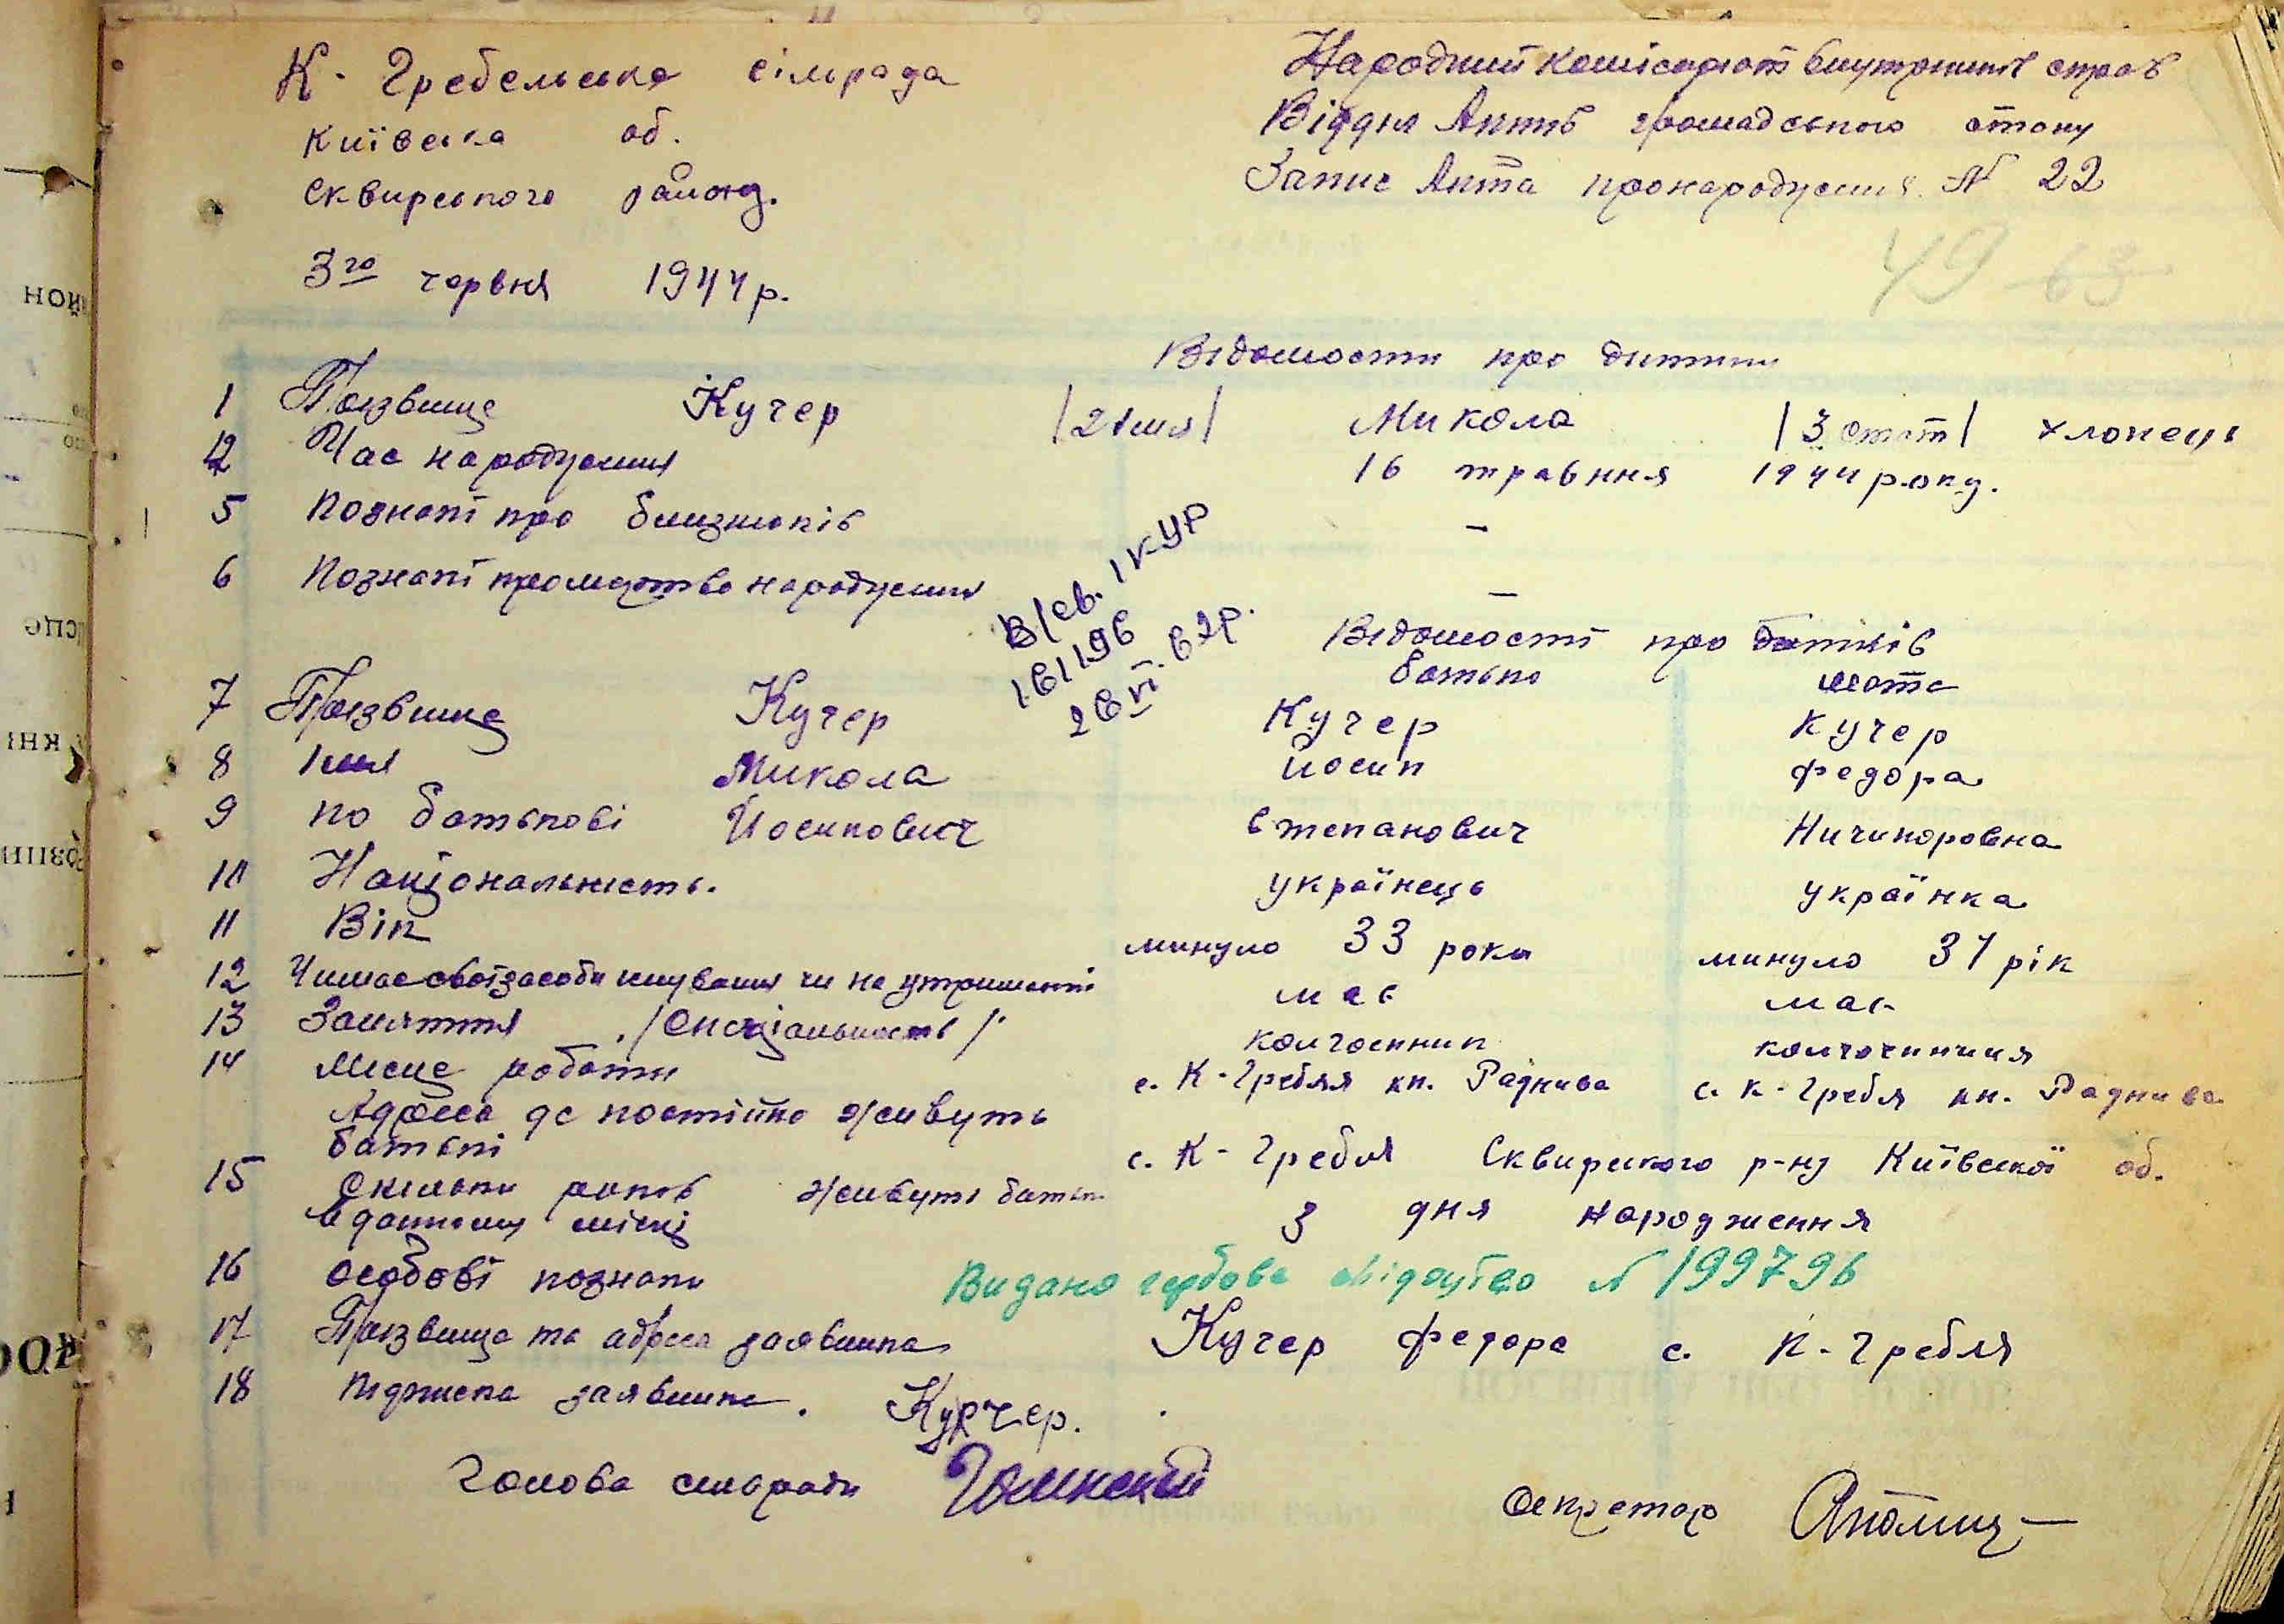 К. Гребельська сільрада
Київська об.
Сквирского района.
3го червня 1944 р.
Народний комісаріат внутрішніх справ
Відділ Актів громадського стану
Запис Акта про народження N 22
49 63
Відомости про дитину
1 Прізвище Кучер /2 імя/ Микола /3 стат/ хлопець
2 Час народження 16 травння 1944 року.
5 Познакі про близнюків —
6 Познакі про мертво народження —
В/св. I КУР
161196
26 VI. 62р.
Відомості про батьків
батько мати
7 Прізвище Кучер Кучер Кучер
8 Імя Микола Йосип Федора
9 по батькові Йосипович Степанович Ничипоровна
10 Національність. українець українка
11 Вік минуло 33 роки минуло 31 рік
12 Чи має свої засоби існування чи на утриманні має має
13 Заняття /Спеціальность/ колгоспник колгоспниця
14 Місце роботи с. К-Гребля кл. Раднива с. К-Гребля кл. Раднива
Адреса де постійно живуть
батькі с. К-Гребля Сквирского р-ну Київської об.
15 Скільки років живуть батьки
в данному місці З дня народження
16 особові познаки Видано гербове свідоцтво N 199796
17 Прізвище та адреса заявника Кучер Федора с. К-Гребля
18 Підписка заявника. Кучер.
Голова сільради
Секретар